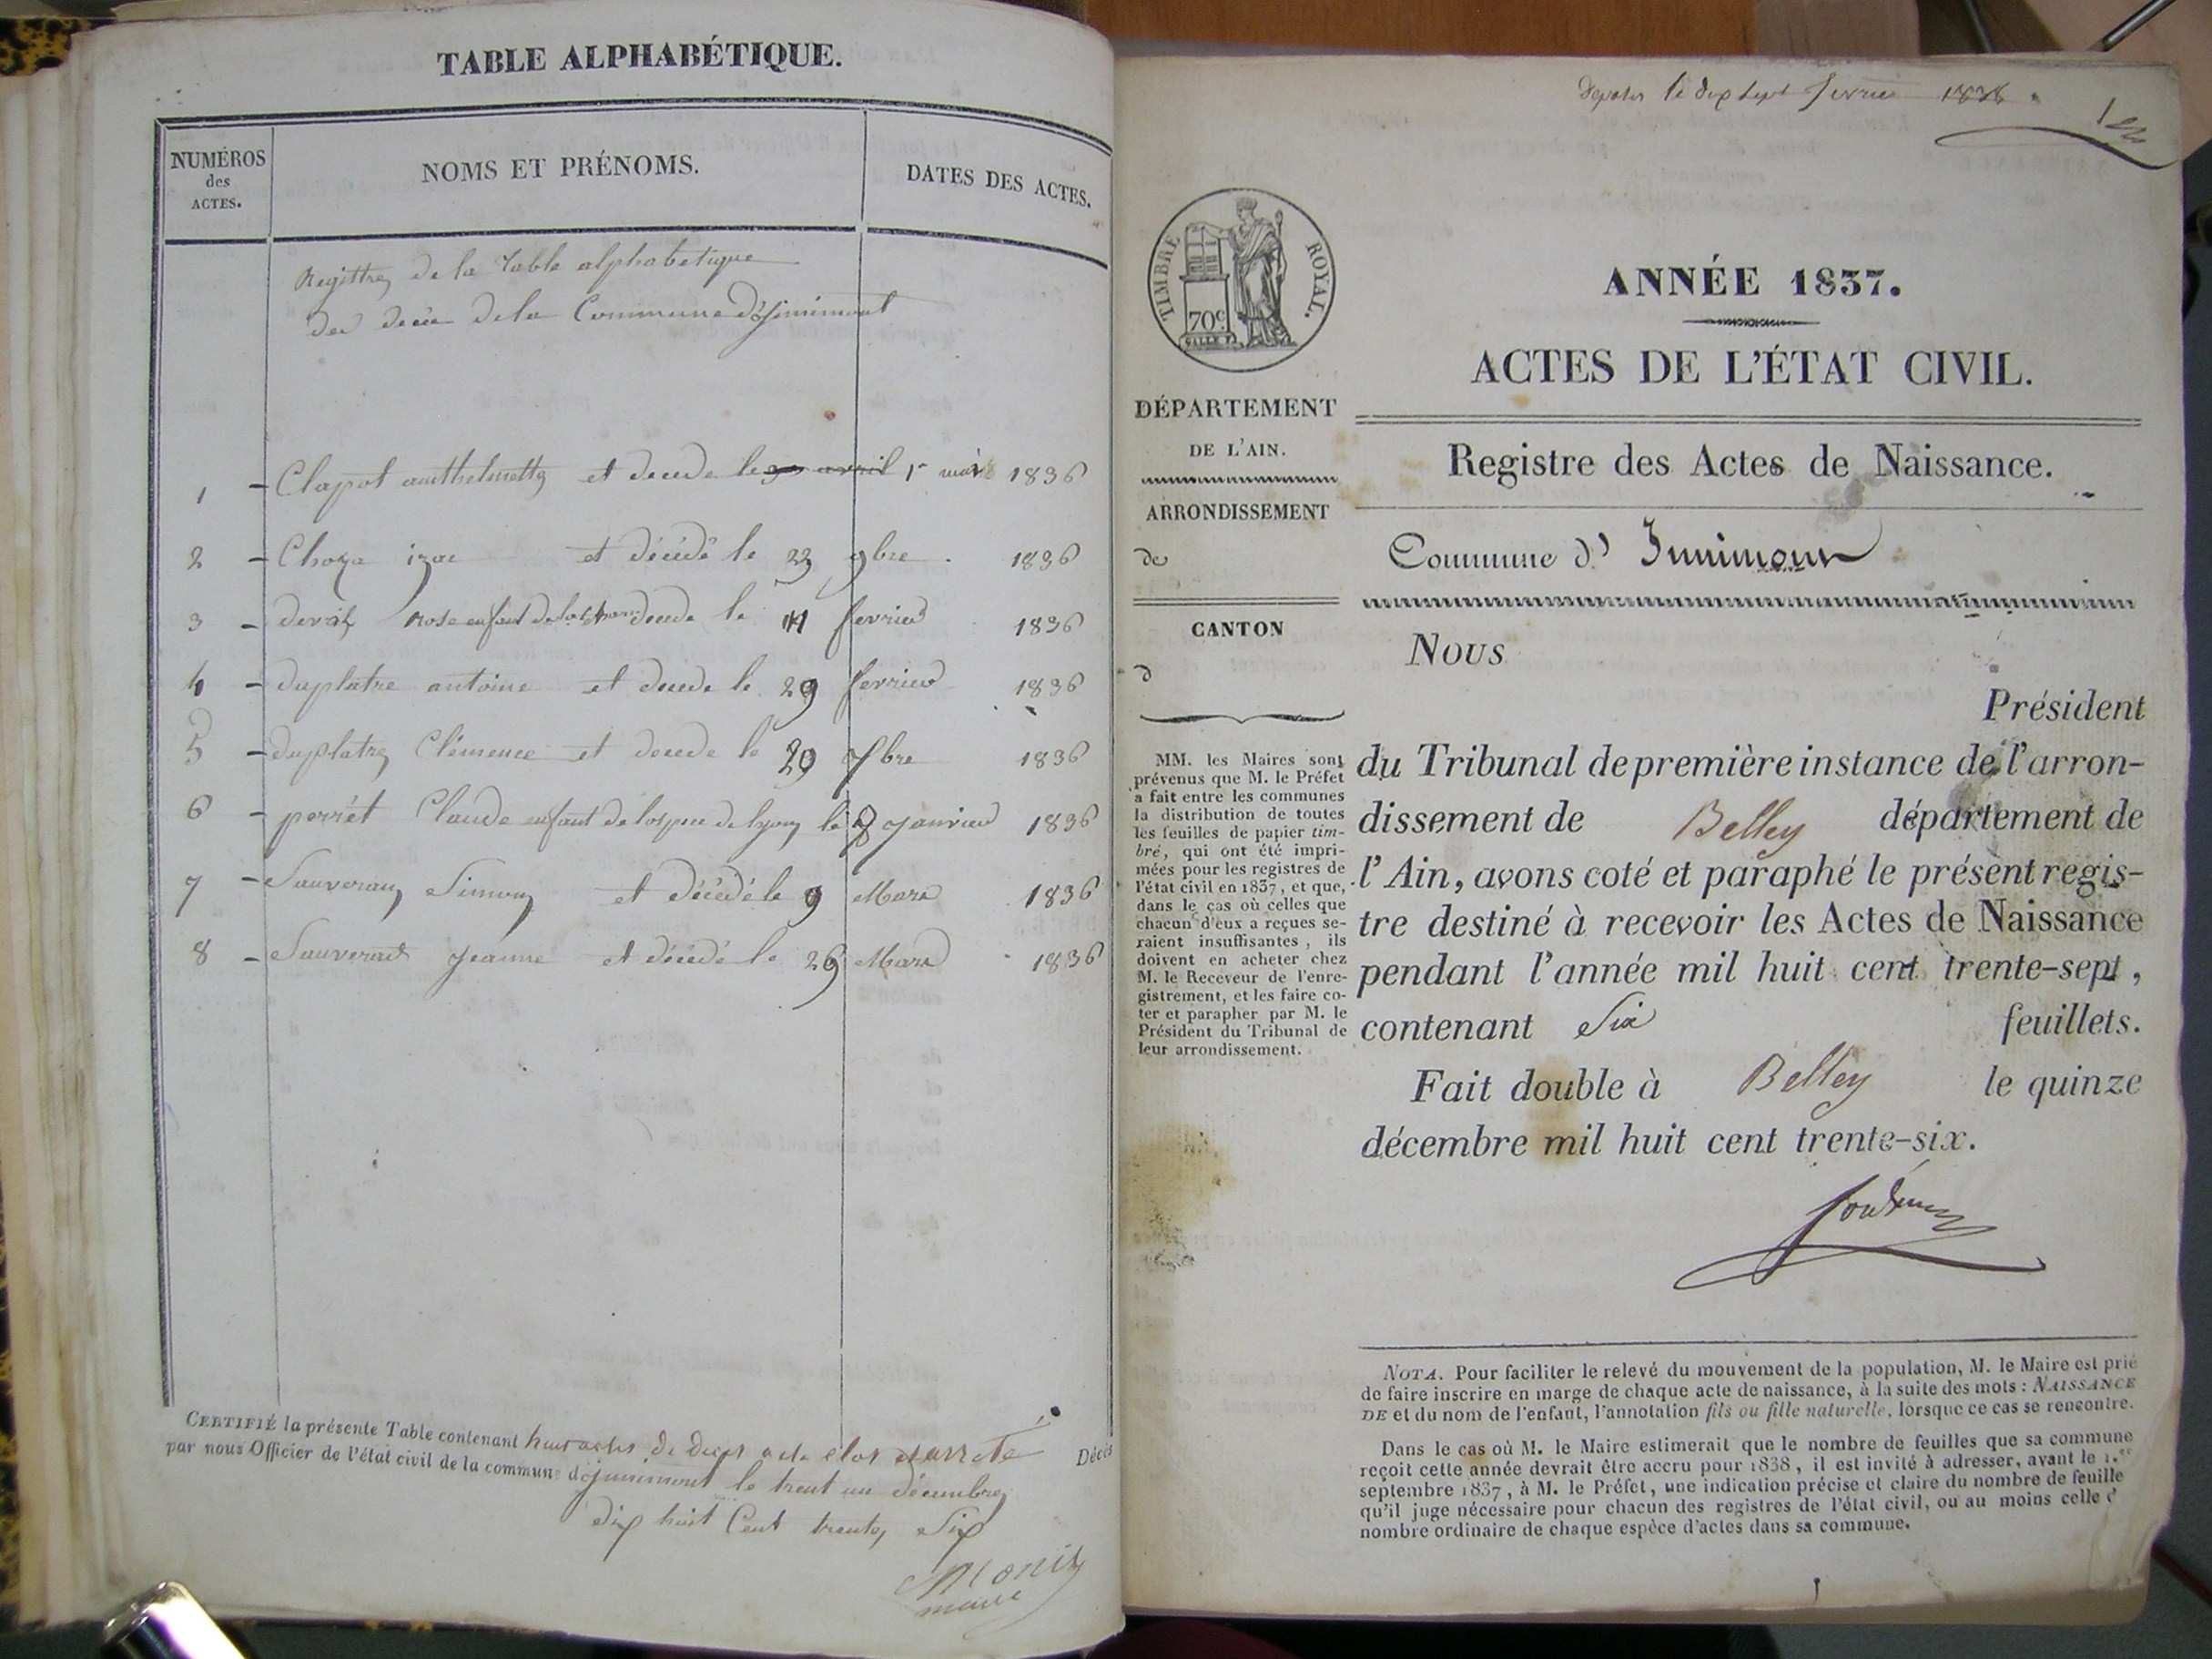 TABLE ALPHABÉTIQUE.
NUMÉROS
des
ACTES.
NOMS ET PRÉNOMS.
DATES DES ACTES.
Registtre de la Table alphabetique
de la Commune d'jnnimont
1 - Clapot anthelmette et decede le 30 avril 1r 1836
2 - Choza izac et décédé le 23 9bre. 1836
3 - Rose enfant de decede le fevrier 1836
4 - duplatre antoine et decede le 29 fevrier 1836
5 - duplatre Clémence et decede le 29 7bre 1836
6 - perrét Claude enfant de lospice de lyon le 8 janvier 1836
7 - Sauveran Simon et décédé le 9 Mars 1836
8 - Sauveran Jeanne et décédé le 26 Mars 1836
CERTIFIÉ la présente Table contenant huit actes de deces a ete clos et arreté
par nous Officier de l'état civil de la commune d'jnnimont le trent un décembre
dix huit Cent trente, Six
maire
Décès
le dix sept fevrier 1838
TIMBRE ROYAL.
70c
ANNÉE 1837.
ACTES DE L'ÉTAT CIVIL.
DÉPARTEMENT
DE L'AIN.
ARRONDISSEMENT
de
CANTON
d
Registre des Actes de Naissance.
Commune d' Innimont
Nous
Président
du Tribunal de première instance de l'arron-
dissement de Belley département de
l'Ain, avons coté et paraphé le présent regis-
tre destiné à recevoir les Actes de Naissance
pendant l'année mil huit cent trente-sept,
contenant Six feuillets.
Fait double à Belley le quinze
décembre mil huit cent trente-six.
MM. les Maires sont
prévenus que M. le Préfet
a fait entre les communes
la distribution de toutes
les feuilles de papier tim-
bré, qui ont été impri-
mées pour les registres de
l'état civil en 1837, et que,
dans le cas où celles que
chacun d'eux a reçues se-
raient insuffisantes, ils
doivent en acheter chez
M. le Receveur de l'enre-
gistrement, et les faire co-
ter et parapher par M. le
Président du Tribunal de
leur arrondissement.
NOTA. Pour faciliter le relevé du mouvement de la population, M. le Maire est prié
de faire inscrire en marge de chaque acte de naissance, à la suite des mots : NAISSANCE
DE et du nom de l'enfant, l'annotation fils ou fille naturelle, lorsque ce cas se rencontre.
Dans le cas où M. le Maire estimerait que le nombre de feuilles que sa commune
reçoit cette année devrait être accru pour 1838, il est invité à adresser, avant le 1.er
septembre 1837, à M. le Préfet, une indication précise et claire du nombre de feuille
qu'il juge nécessaire pour chacun des registres de l'état civil, ou au moins celle d
nombre ordinaire de chaque espèce d'actes dans sa commune.